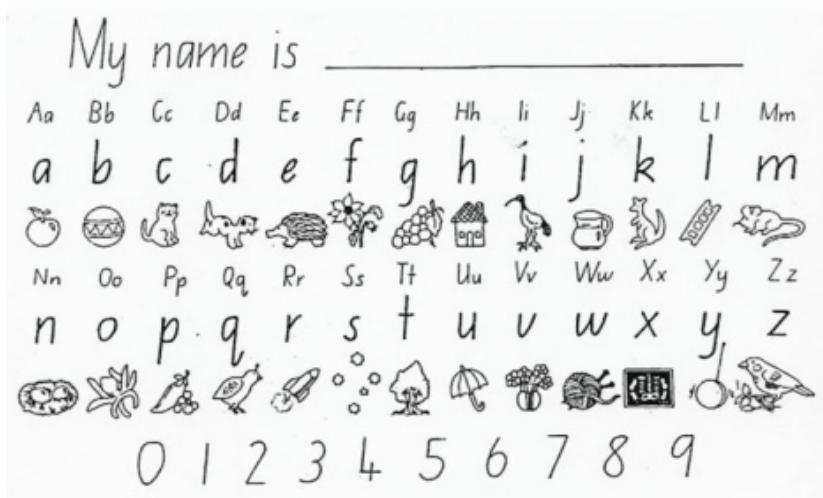 My name is
Aa Bb Cc Dd Ee Ff Gg Hh Ii Jj Kk Ll Mm
a b c d e f g h i j k l m
Nn Oo Pp Qq Rr Ss Tt Uu Vv Ww Xx Yy Zz
n o p q r s t u v w x y z
0 1 2 3 4 5 6 7 8 9